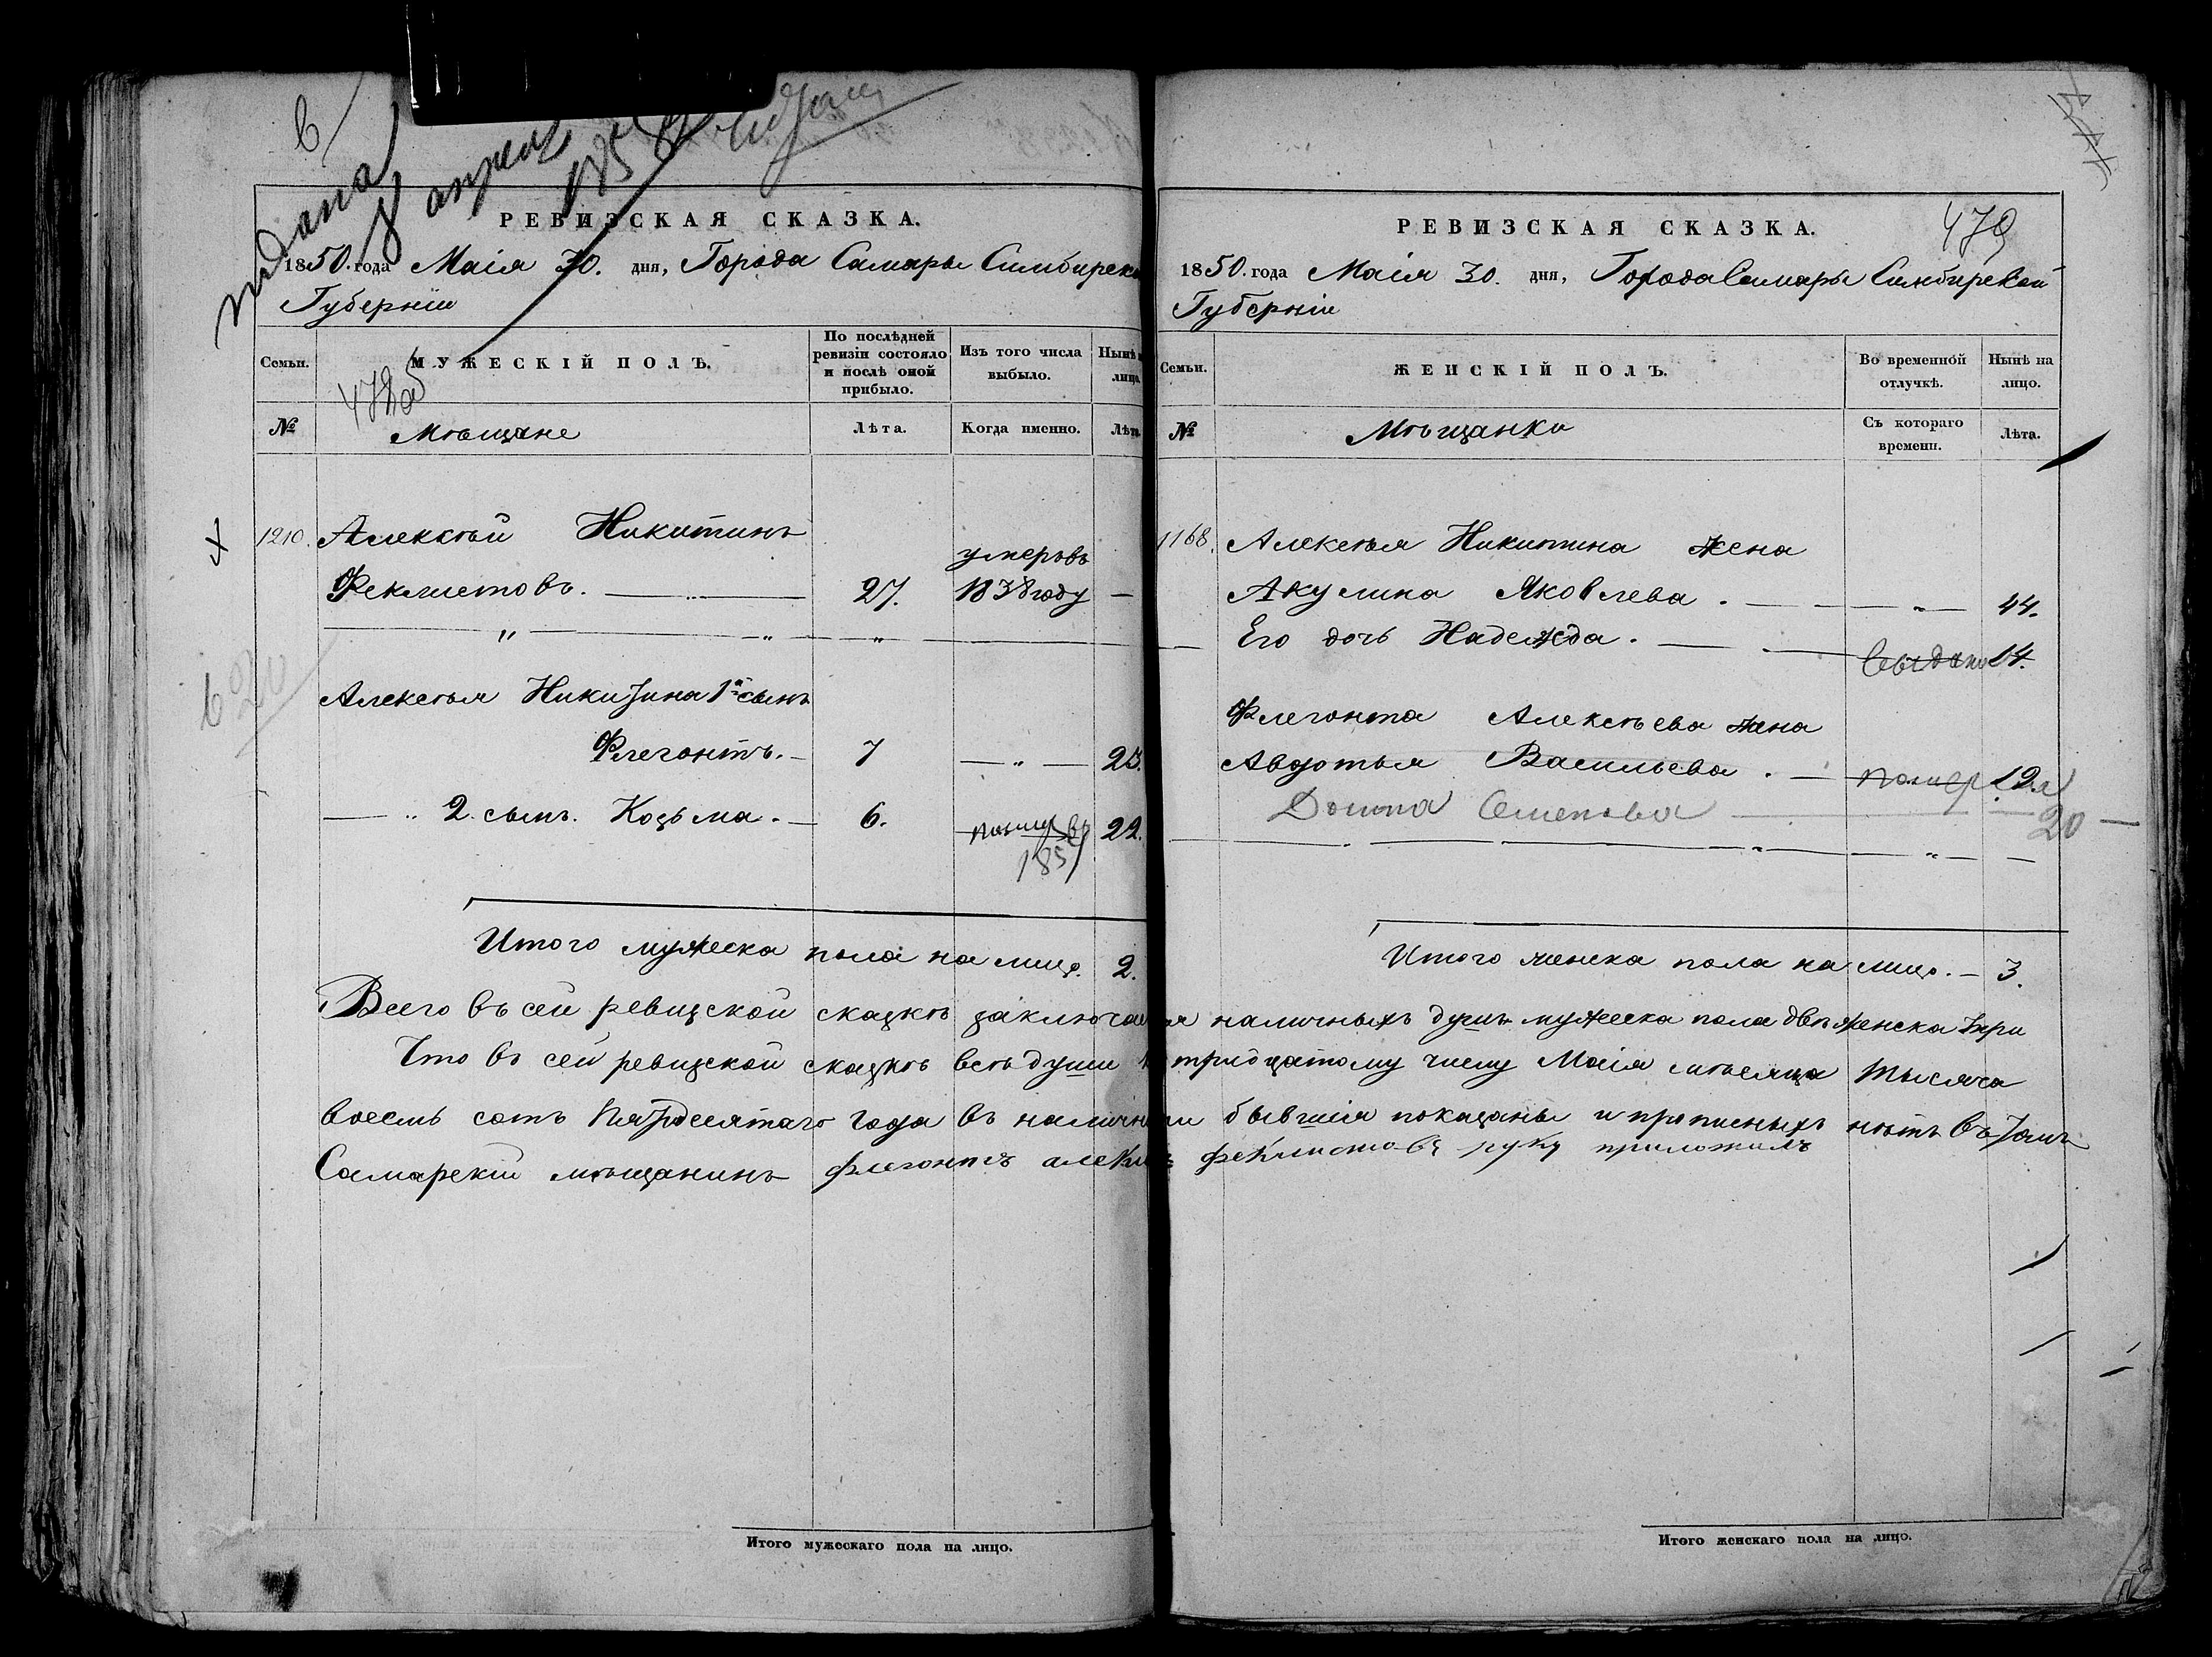 подана
8 апрел
РЕВИЗСКАЯ СКАЗКА.
1850. года Маія 30. дня, Города Самары Симбирско
Губерніи
Семьи.
МУЖЕСКІЙ ПОЛЪ.
По послѣдней ревизіи состояло и послѣ оной прибыло.
Изъ того числа выбыло.
Нынѣ на лицо.
478 об
№
Мѣщане
Лѣта.
Когда именно.
Лѣта
1210. Алексѣй Никитинъ
умеръ въ
Феклистовъ. 27. 1838 году —
Алексѣя Никитина 1й сынъ
Флегонтъ. — 7 — „ — 23.
— „ 2. сынъ. Козьма. — 6. помер въ 22.
185
Итого мужеска пола на лицо. 2.
Всего въ сей ревизской сказкѣ заключае
Что въ сей ревизской сказкѣ всѣ души к
восемь сотъ пятдесятаго года въ наличн
Самарскій мѣщанинъ флегонтъ алекс
Итого мужескаго пола на лицо.
479
РЕВИЗСКАЯ СКАЗКА.
1850. года Маія 30. дня, Города Самары Симбирской
Губерніи
Семьи.
ЖЕНСКІЙ ПОЛЪ.
Во временной отлучкѣ.
Нынѣ на лицо.
№
Мѣщанки
Съ котораго времени.
Лѣта.
1168. Алексѣя Никитина жена
Акулина Яковлева. — „ — 44.
Его дочь Надежда. — выдана 14.
Флегонта Алексѣева жена
Авдотья Васильева. — помер 19.
Семенова 20
Итого женска пола на лицо. — 3.
ся наличныхъ душъ мужеска пола двѣ женска три
тридцатому числу Маія мѣсяца тысяча
ти бывшія показаны и прописныхъ нѣтъ въ томъ
феклистовъ руку приложилъ
Итого женскаго пола на лицо.